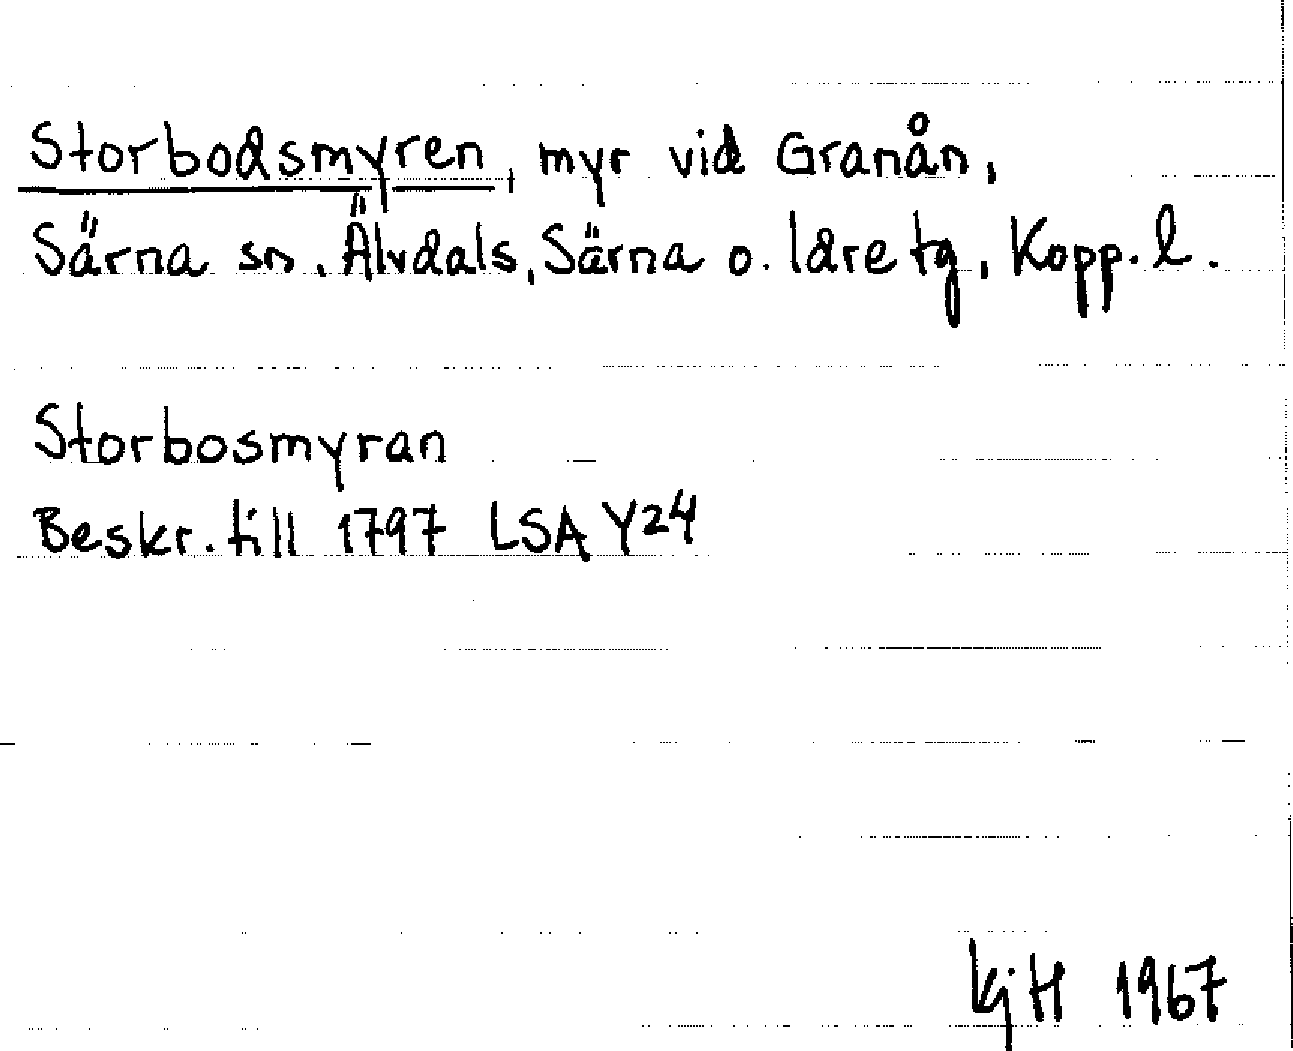 Storbodsmyren, myr vid Granån,
Särna sn. Älvdals, Särna o. Idre tg, Kopp. l.
Storbosmyran
Beskr. till 1797 LSA Y24
KjH 1967